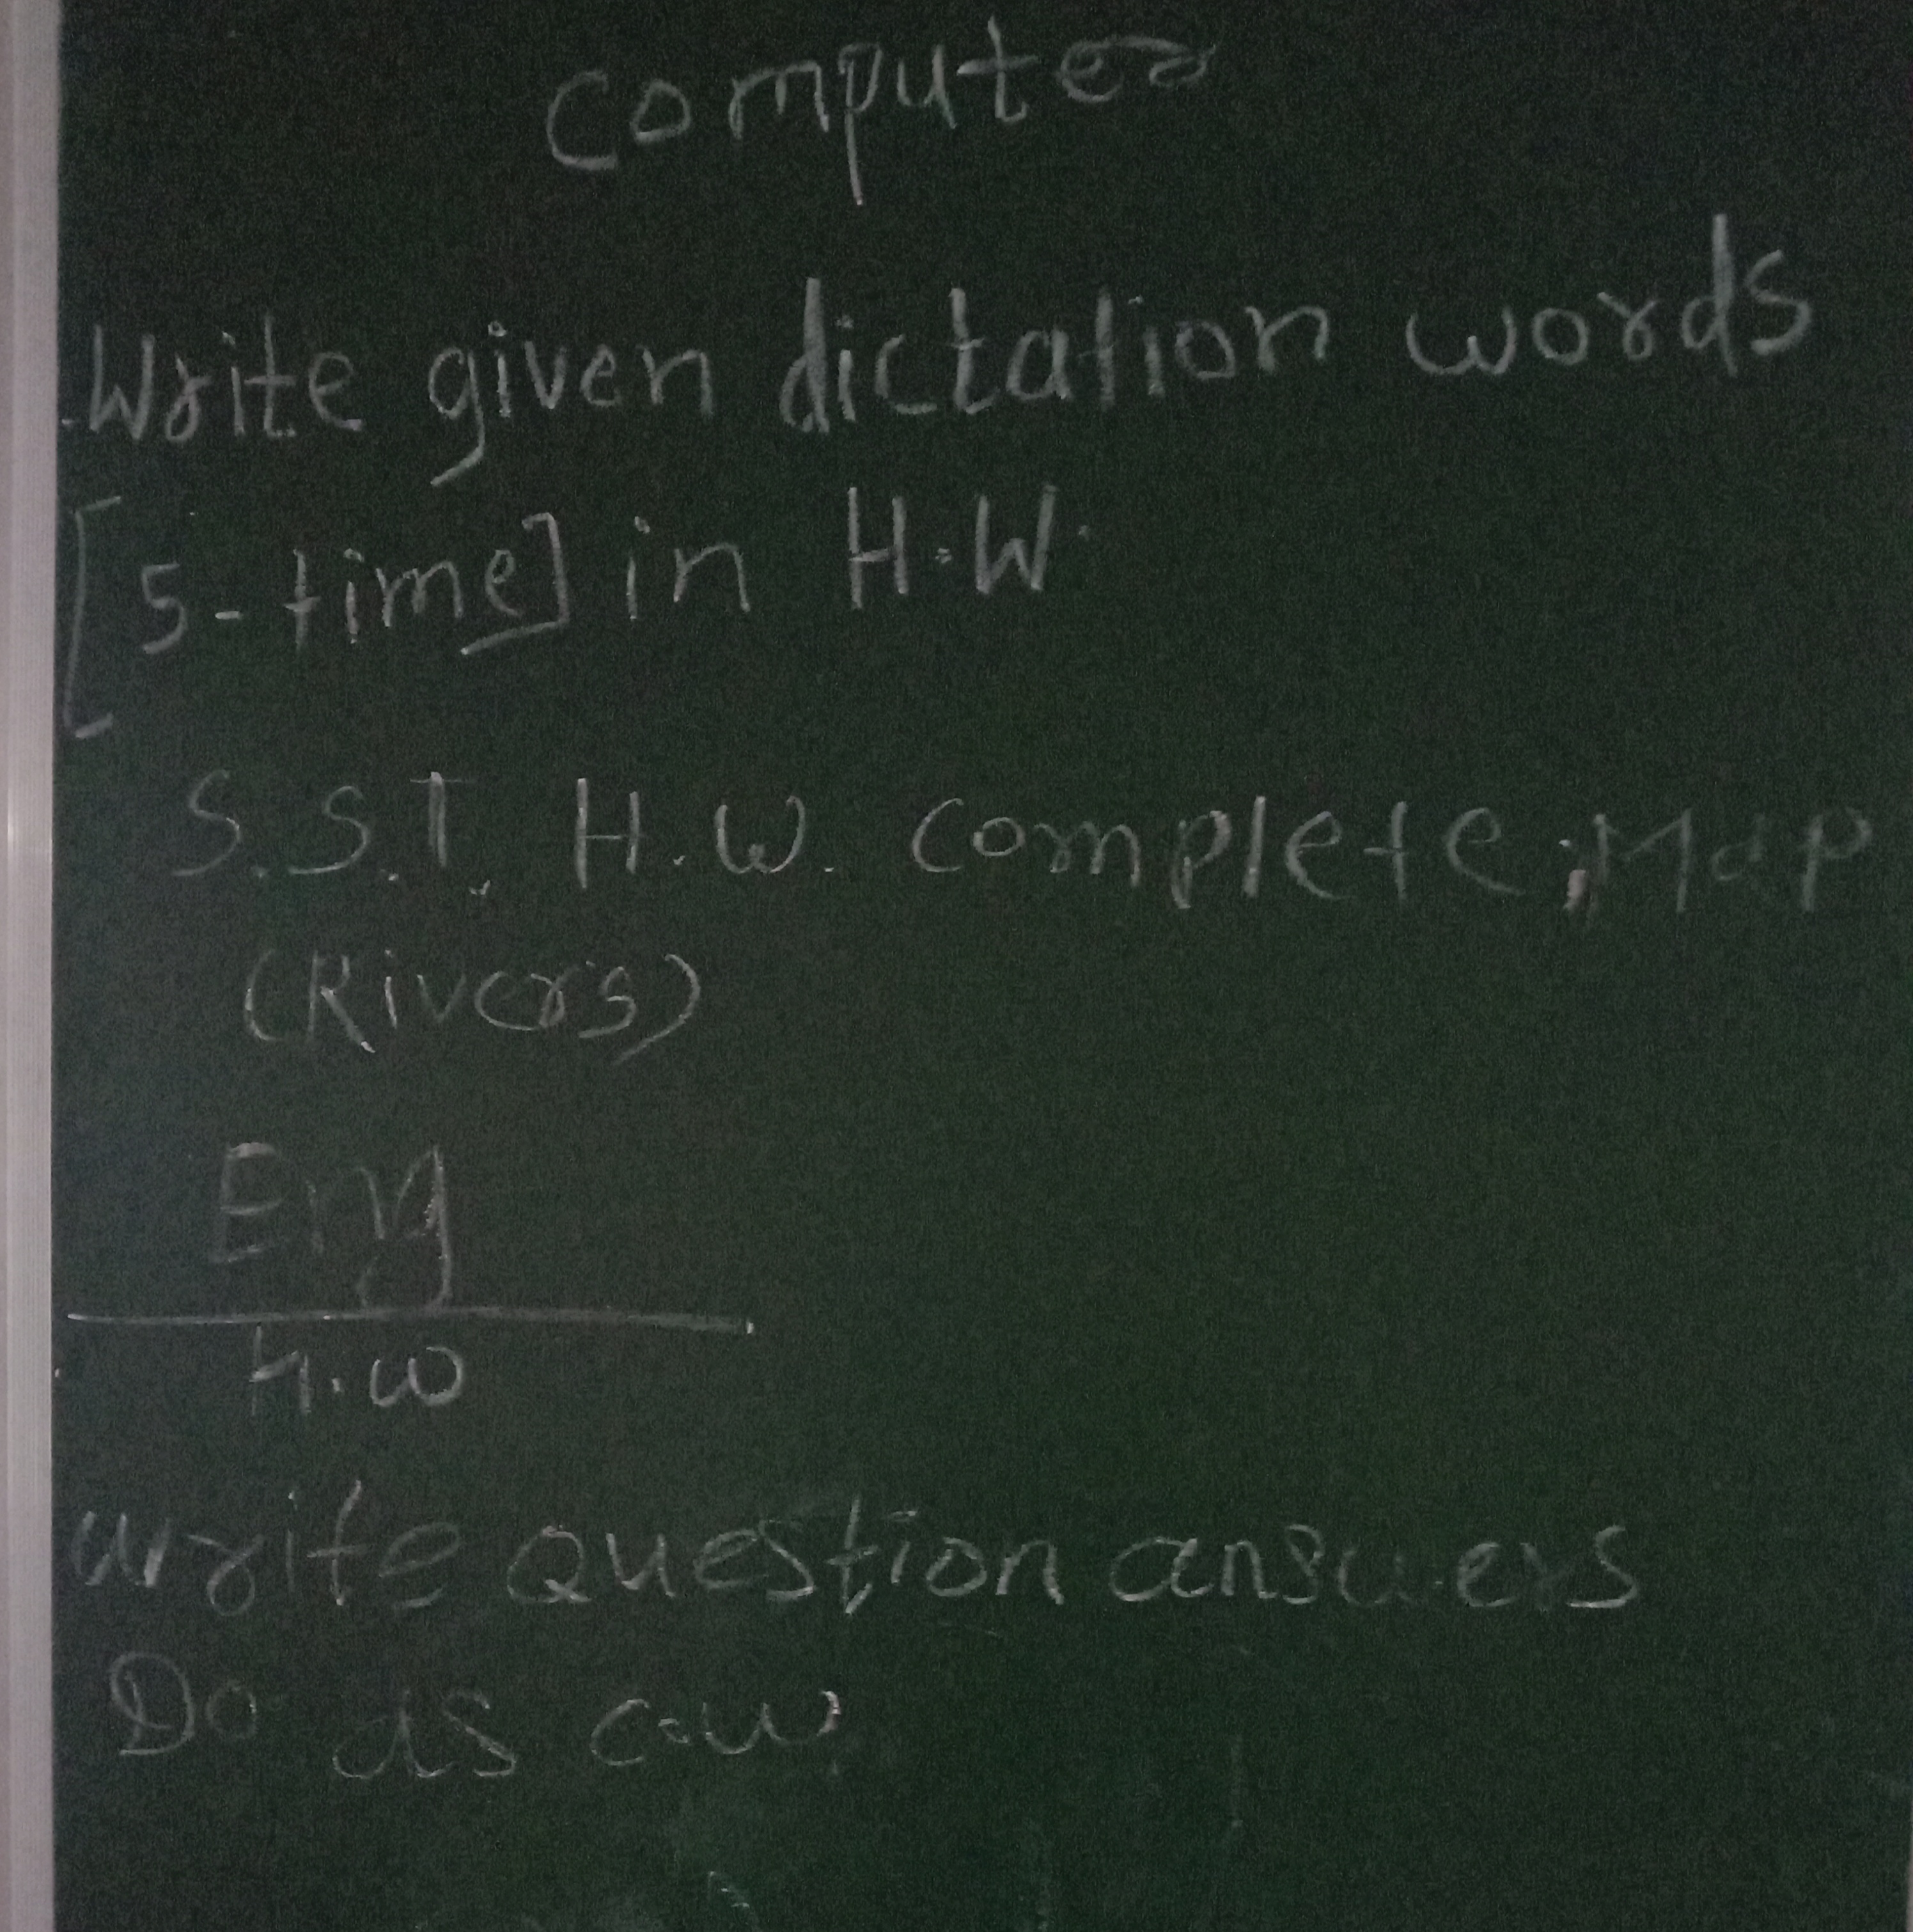 Computer
Write given dictation words
[5-time] in H.W.
S.S.T. H.W. Complete, Map
(Rivers)
Eng
H.W
Write Question answers
Do as C.W.